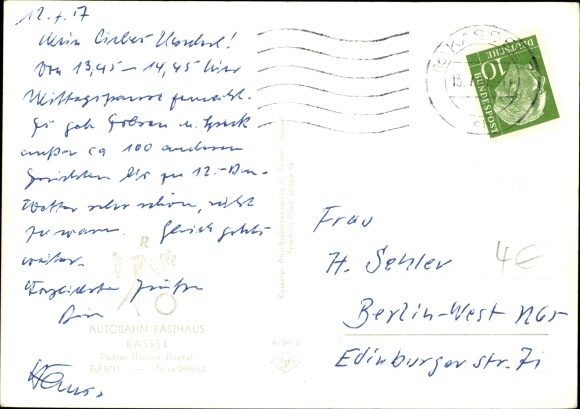 12.7.57
Mein liebes Mordel!
Von 13,45 – 14,45 hier
Mittagspause gemacht.
Es gab Bohnen u. Speck
außer ca 100 anderen
Gerichten bis zu 12.- Dm.
Wetter sehr schön, nicht
zu warm. Gleich gehts
weiter.
Herzlichste Grüße
Dein
Hans.
R
AUTOBAHN RASTHAUS
KASSEL
Pächter Herbert Henkel
Ruf 5711 — Telex 099642
KASSEL
13.7.
10
DEUTSCHE
BUNDESPOST
Frau
H. Sehler
Berlin-West N65
Edinburger str. 71
4€